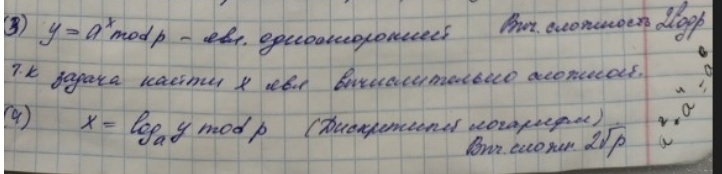 (3) y = a^x mod p – явл. односторонней Выч. сложность 2log p
т.к задача найти x явл вычислительно сложной.
(4) x = log_a y mod p (Дискретный логарифм)
Выч. сложн. 2√p